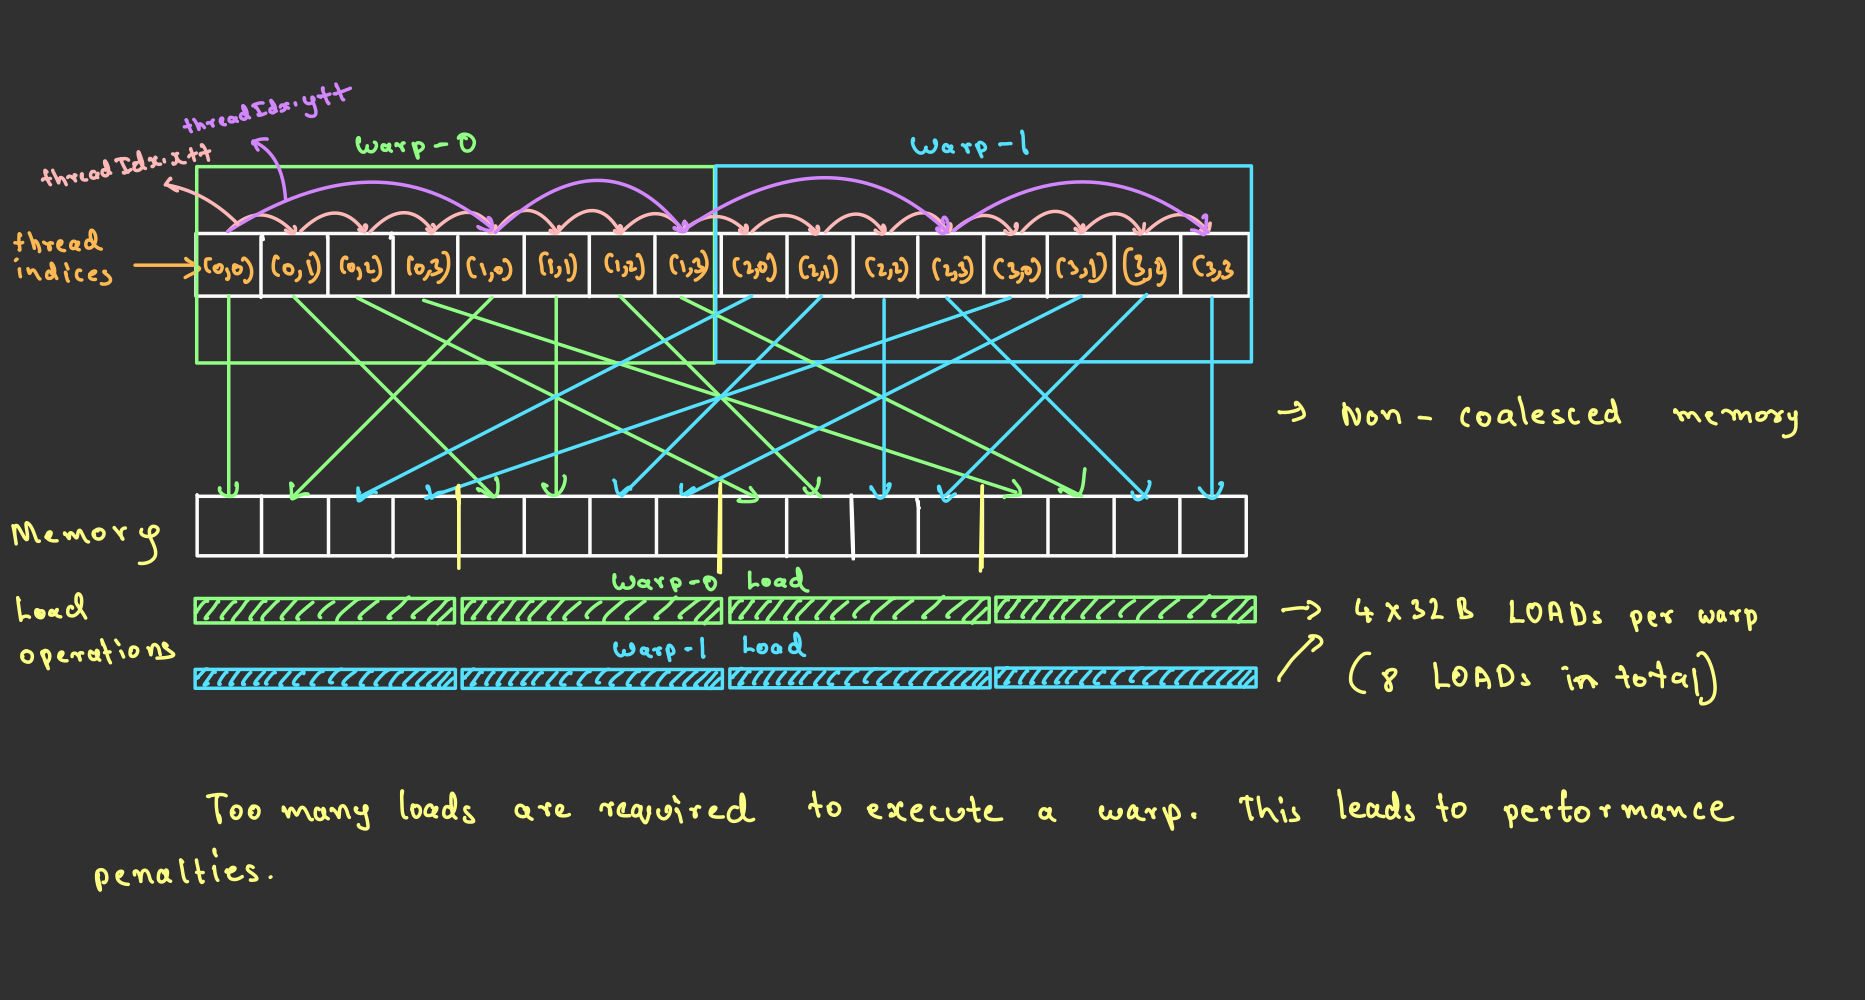 threadIdx.y++
threadIdx.x++
Warp-0
Warp-1
thread
indices
(0,0) (0,1) (0,2) (0,3) (1,0) (1,1) (1,2) (1,3) (2,0) (2,1) (2,2) (2,3) (3,0) (3,1) (3,2) (3,3
→ Non - coalesced memory
Memory
Warp-0 Load
Load
operations
→ 4 x 32 B LOADs per warp
Warp-1 Load
(8 LOADs in total)
Too many loads are required to execute a warp. This leads to performance
penalties.